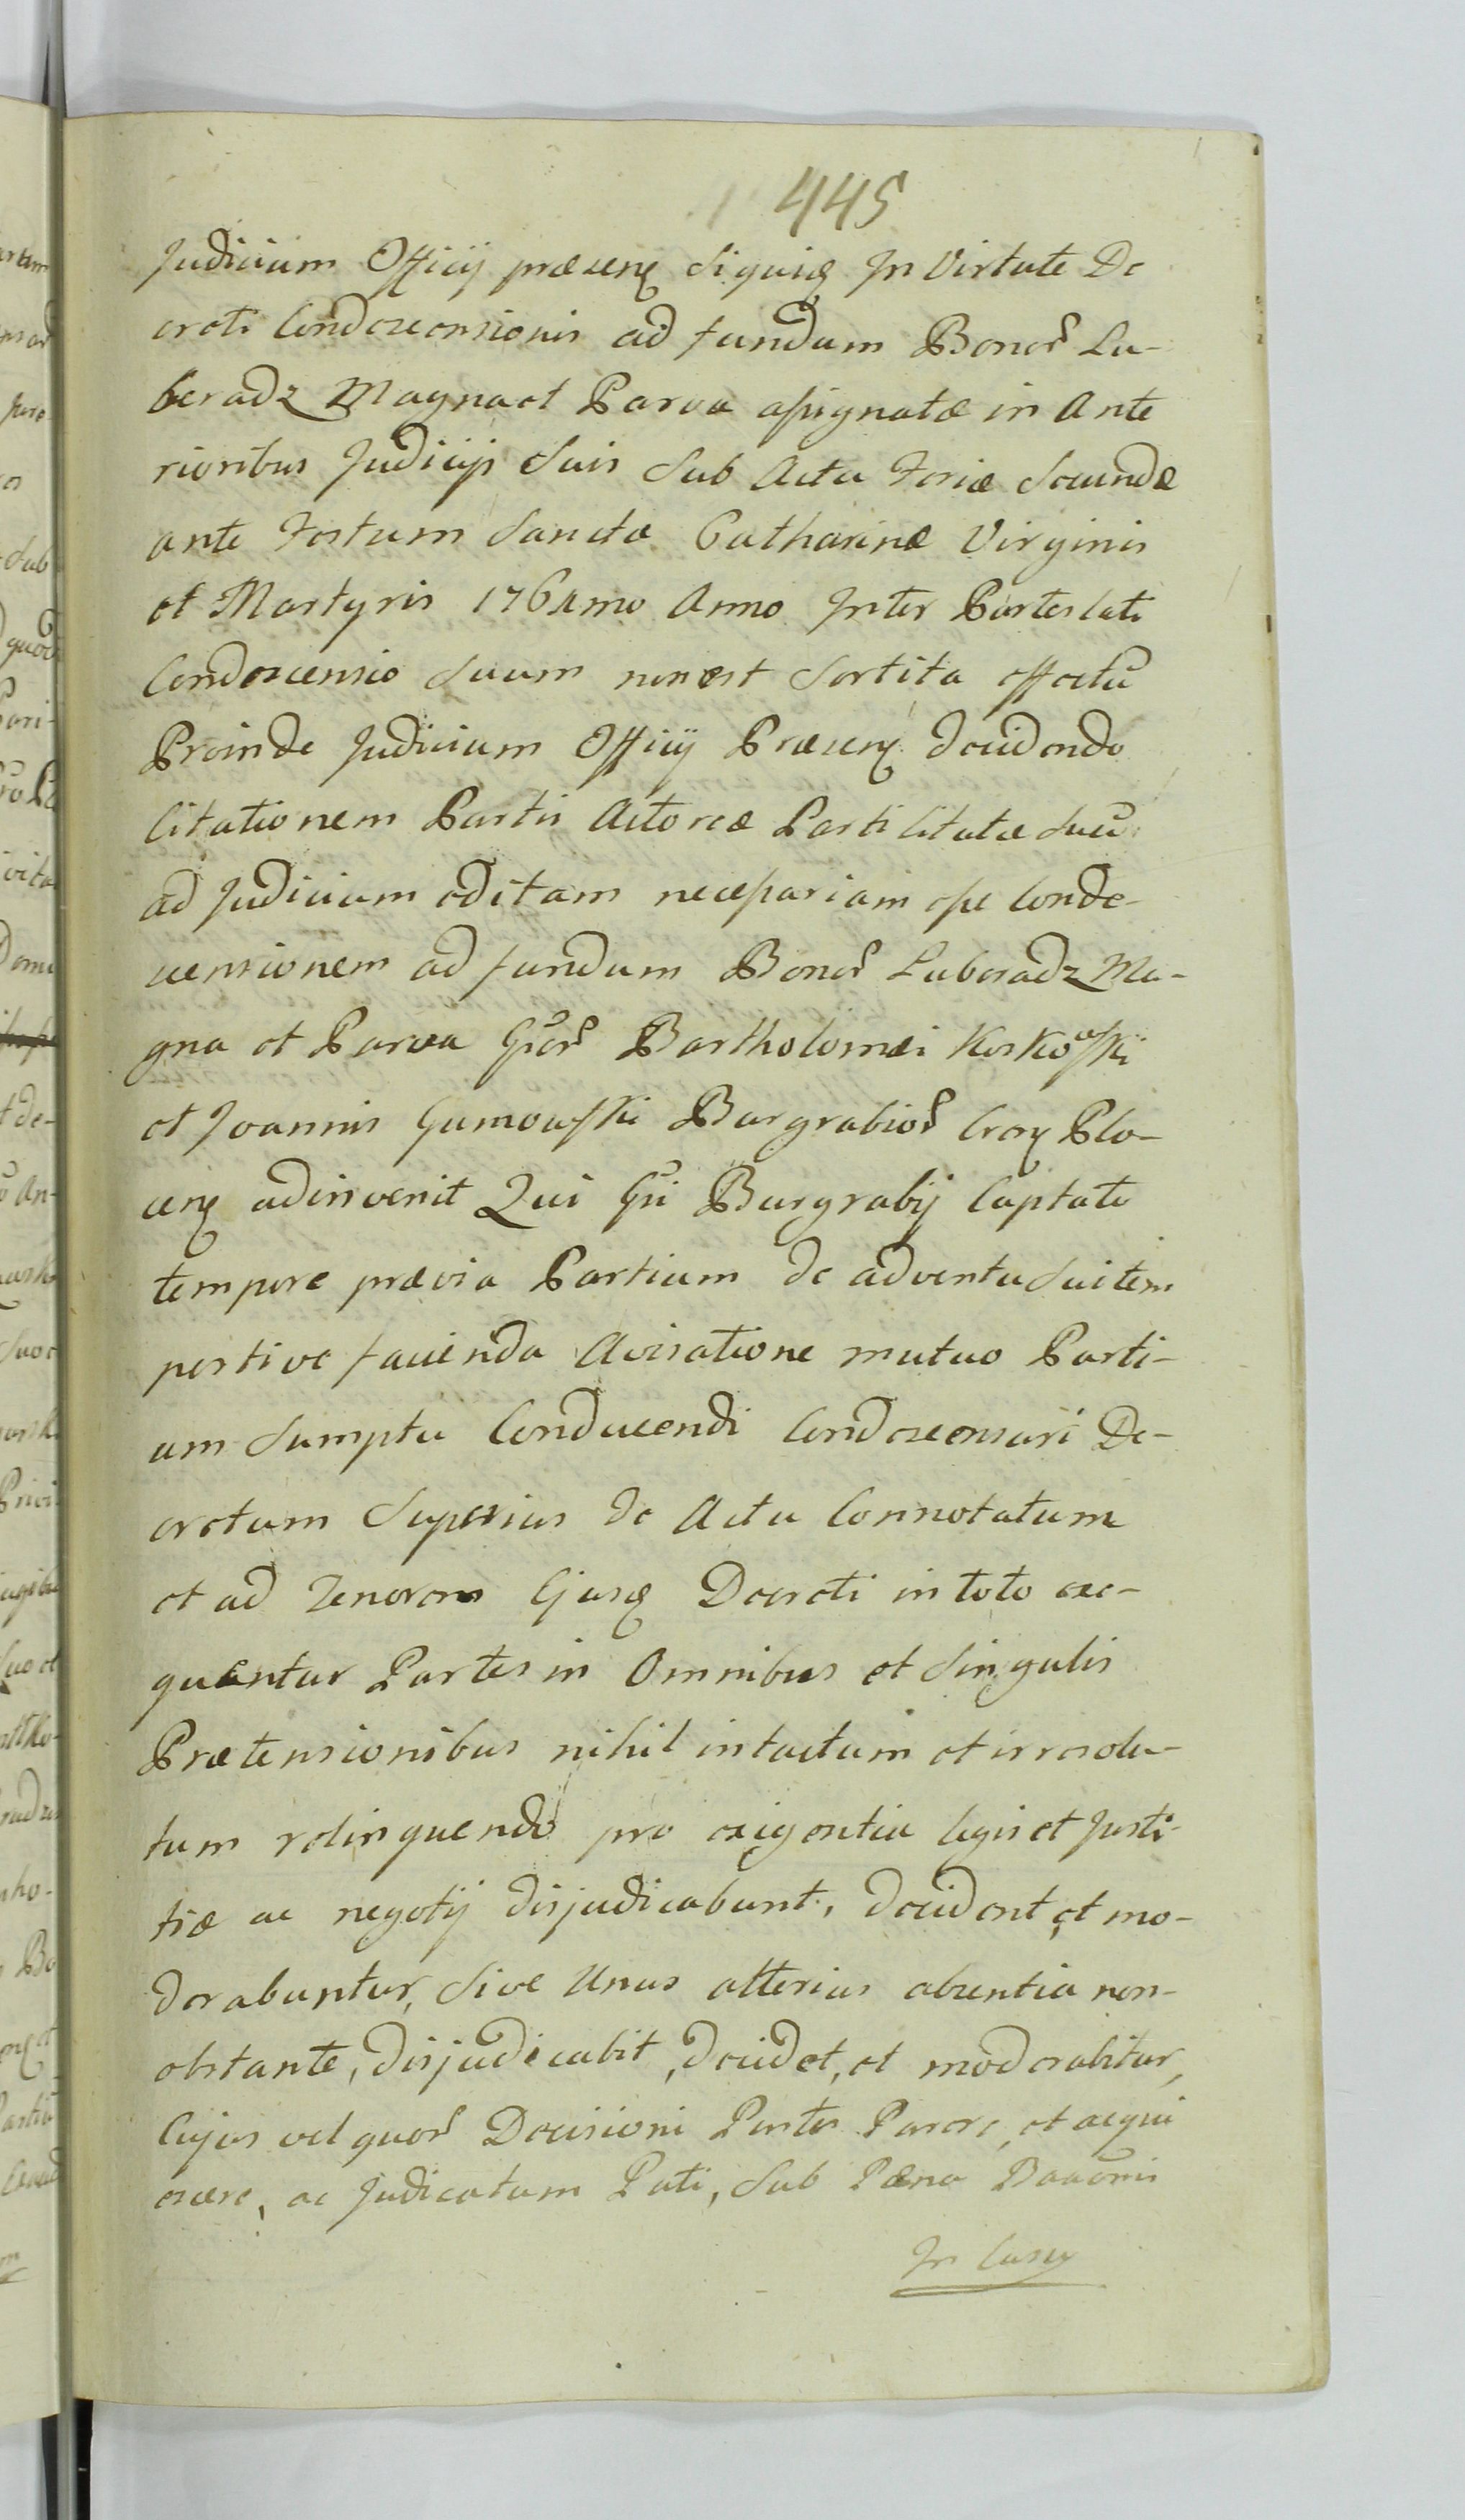 445
Judicium Officij præsens siquis In Virtute De
creti Condescensionis ad fundum Bonor Lu-
beradz Magna et Parva assignatæ in Ante
rioribus Judicijs Suis Sub Actu Feriæ Secundæ
ante Festum Sanctæ Catharinæ Virginis
et Martyris 1761mo Anno Inter Partes lata
Condescensio Suum non est Sortita effectū
Proinde Judicium Officij Præsens decidendo
Citationem Partis Actoreæ Parti Citatæ Suū
ad Judicium editam necessariam esse Conde-
scensionem ad fundum Bonor Luberadz Ma-
gna et Parva Gsor Bartholomæi Koskowski
et Joannis Gumowski Burgrabior Crens Plo-
cens adinvenit Qui Gsi Burgrabij Captato
tempore prævia Partium de adventu Sui tem
pestive facienda Avisatione mutuo Parti-
um Sumptu Conducendi Condescensuri De-
cretum Superius de Actu Connotatum
et ad Tenorem Ejusq Decreti in toto exe-
quentur Partes in Omnibus et Singulis
Prætensionibus nihil intactum et irresolu-
tum relinquendo pro exigentia legis et Justi-
tiæ ac negotij disjudicabunt, decident, et mo-
derabuntur, Sive Unus alterius absentia non-
obstante, disjudicabit, decidet, et moderabitur,
Cujus vel quor Decisioni Partes Parere, et acqui
escere, ac Judicatum Pati, Sub Pæna Bannis
In Casu